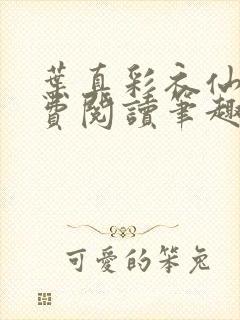 葉真彩衣仙
費閱讀筆趣
可愛的笨兔